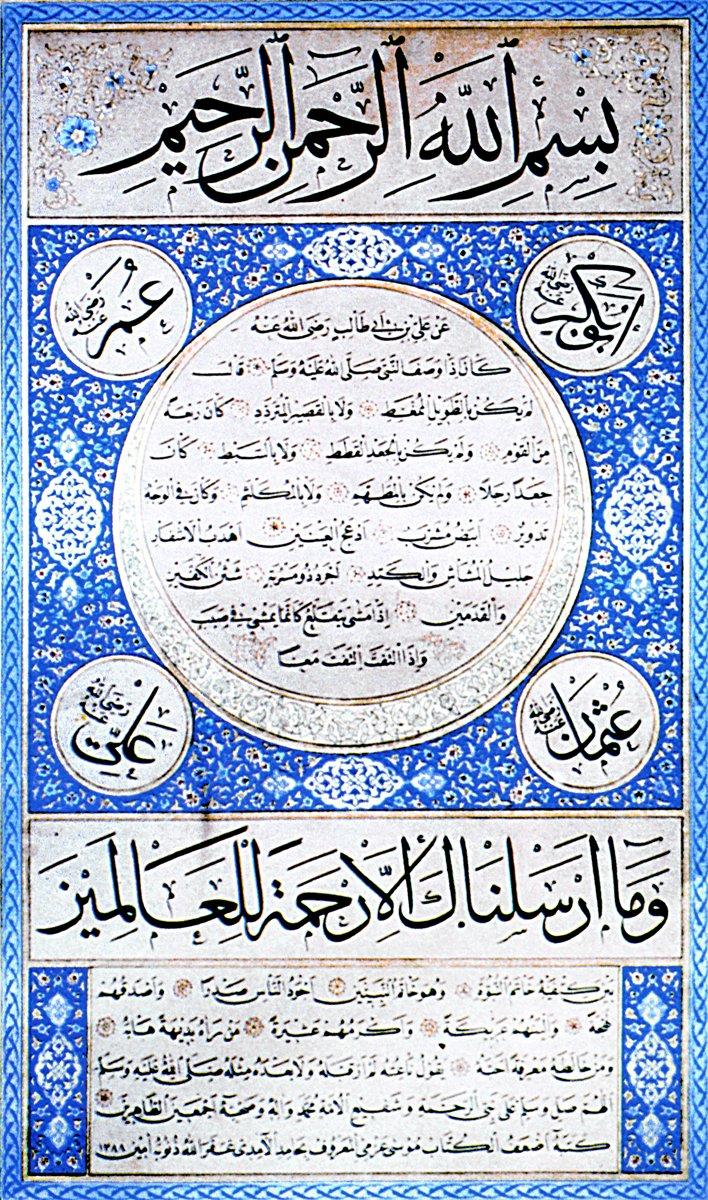 بِسْمِ اللهِ الرَّحْمٰنِ الرَّحِيمِ
ابوبكر رضى الله عنه
عمر رضى الله عنه
عن علي بن ابى طالب رضى الله عنه
كان اذا وصف النبى صلى الله عليه وسلم قال
لم يكن بالطويل الممغط ولا بالقصير المتردد كان ربعة
من القوم ولم يكن بالجعد القطط ولا بالسبط كان
جعدا رجلا ولم يكن بالمطهم ولا بالمكلثم وكان فى الوجه
تدوير ابيض مشرب ادعج العينين اهدب الاشفار
جليل المشاش والكتد اجرد ذو مسربة شثن الكفين
والقدمين اذا مشى تقلع كانما يمشى فى صبب
واذا التفت التفت معا
عثمان رضى الله عنه
على رضى الله عنه
وما ارسلناك الا رحمة للعالمين
بين كتفيه خاتم النبوة وهو خاتم النبيين اجود الناس صدرا واصدقهم
لهجة والينهم عريكة واكرمهم عشيرة من رآه بديهة هابه
ومن خالطه معرفة احبه يقول ناعته لم ار قبله ولا بعده مثله صلى الله عليه وسلم
اللهم صل وسلم على نبى الرحمة وشفيع الامة محمد وآله وصحبه اجمعين الطاهرين
كتبه اضعف الكتاب موسى عزمى المعروف بحامد الآمدى غفر الله ذنوبه آمين